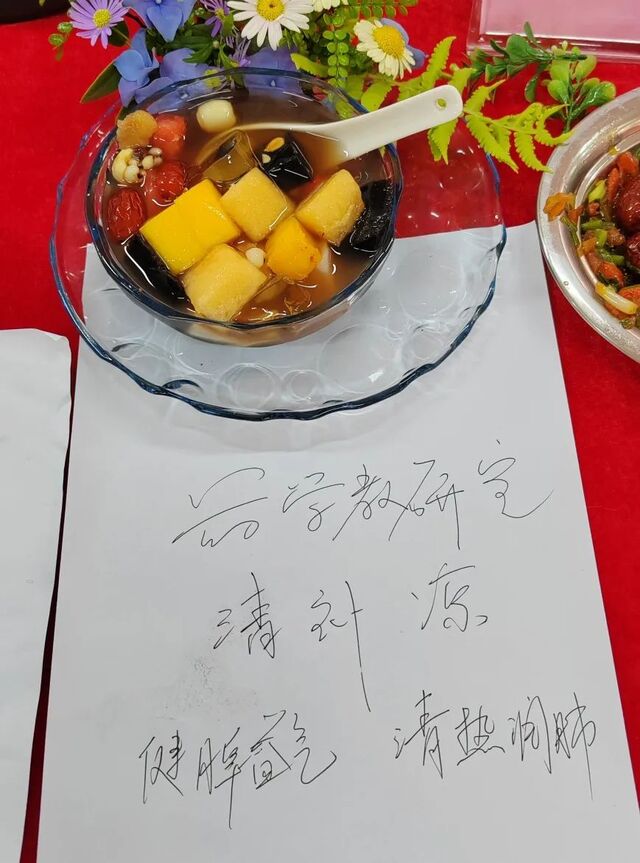 药学教研室
清补凉
健脾益气 清热润肺